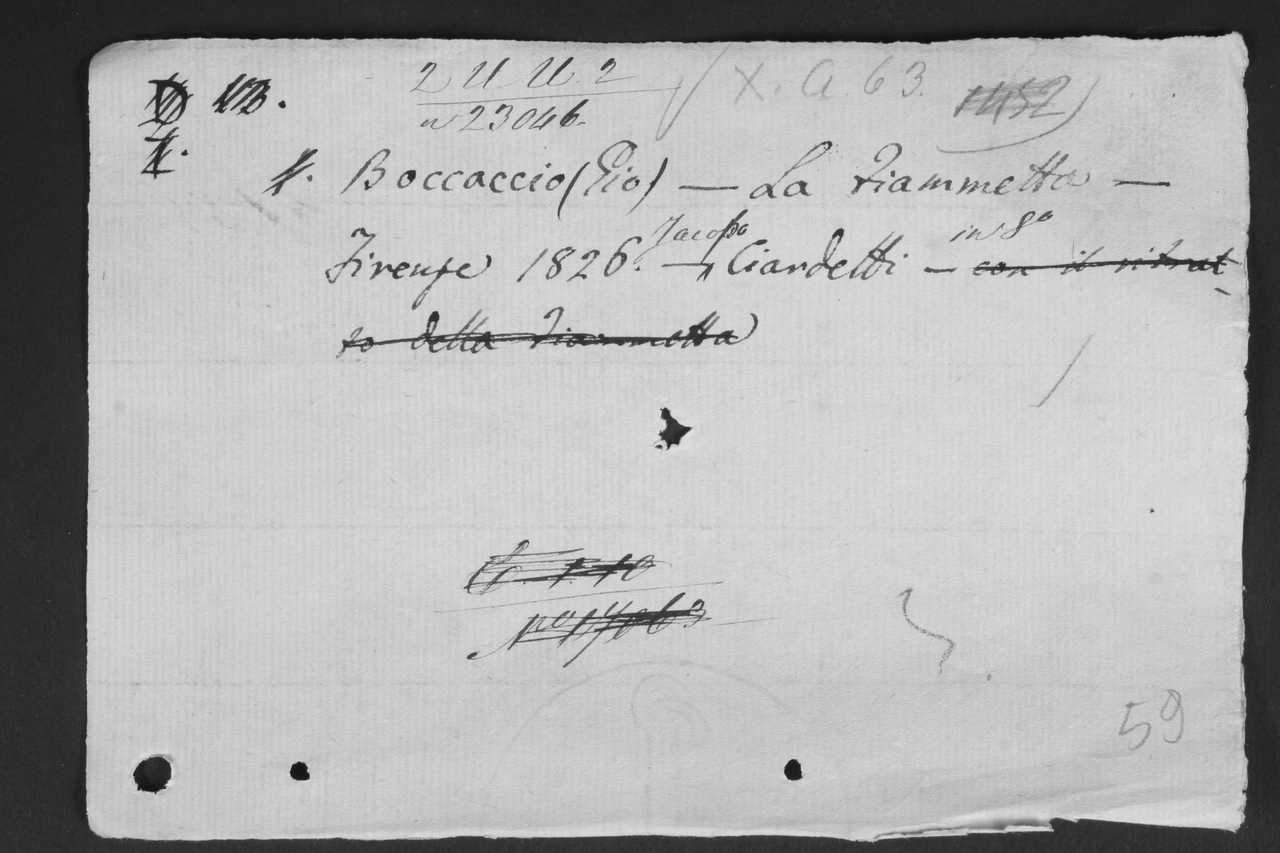 2 U U. 2
n 23046.
X. A. 63.
1452
Boccaccio (Gio) — La Fiammetta —
Firenze 1826. — Jacopo Ciardetti — in 8° con il ritrat-
to della Fiammetta
N° 17063
59